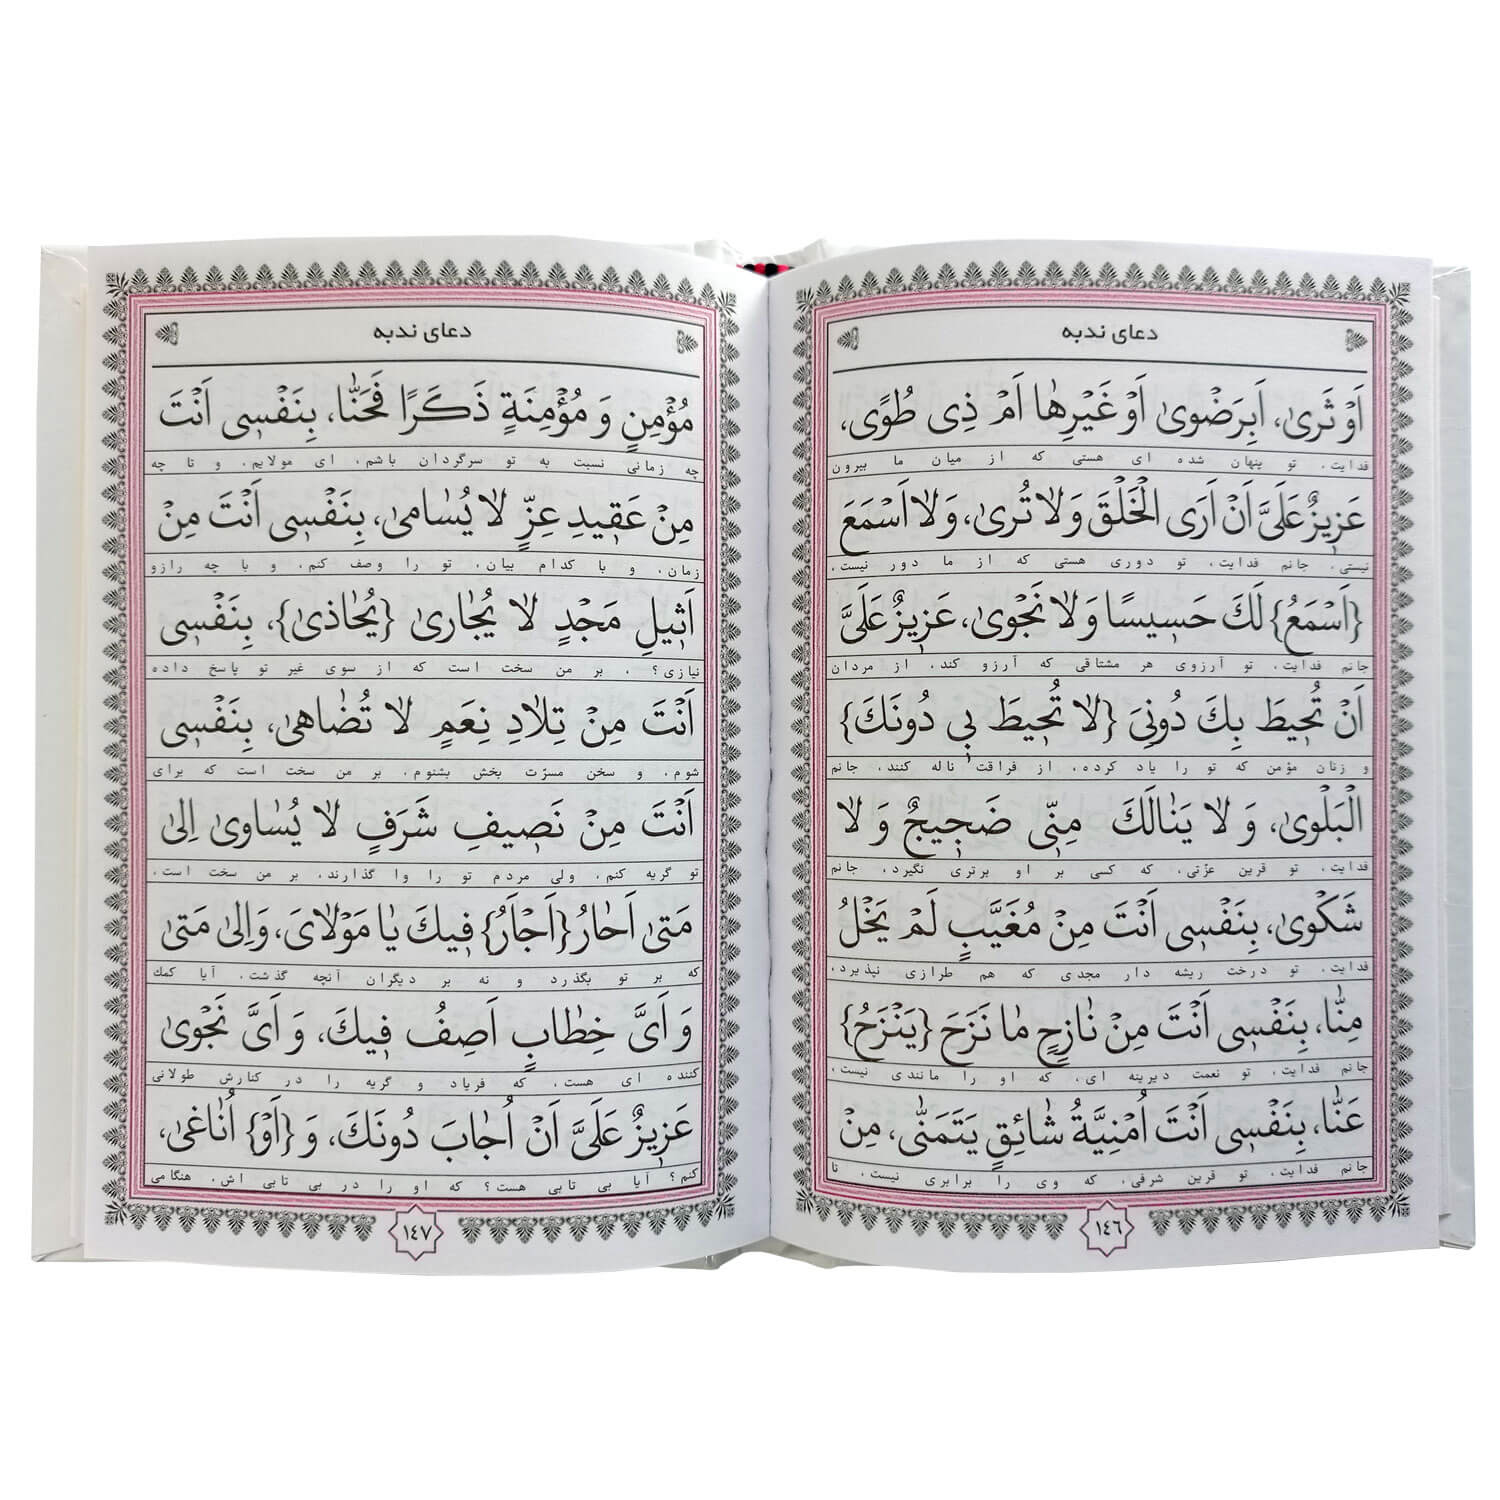 دعای ندبه
اَوْ ثَرىٰ، اَبِرَضْوىٰ اَوْ غَيْرِهٰا اَمْ ذِى طُوًى،
فدایت، تو پنهان شده ای هستی که از میان ما بیرون
عَزيزٌ عَلَىَّ اَنْ اَرَى الْخَلْقَ وَ لاٰ تُرىٰ، وَ لاٰ اَسْمَعَ
نیستی، جانم فدایت، تو دوری هستی که از ما دور نیست،
{اَسْمَعُ} لَكَ حَسيسًا وَ لاٰ نَجْوىٰ، عَزيزٌ عَلَىَّ
جانم فدایت، تو آرزوی هر مشتاقی که آرزو کند، از مردان
اَنْ تُحيطَ بِكَ دُونِىَ {لاٰ تُحيطَ بى دُونَكَ}
و زنان مؤمن که تو را یاد کرده، از فراقت ناله کنند، جانم
الْبَلْوىٰ، وَ لاٰ يَنٰالَكَ مِنّى ضَجيجٌ وَ لاٰ
فدایت، تو قرین عزّتی، که کسی بر او برتری نگیرد، جانم
شَكْوىٰ، بِنَفْسى اَنْتَ مِنْ مُغَيَّبٍ لَمْ يَخْلُ
فدایت، تو درخت ریشه دار مجدی که هم طرازی نپذیرد،
مِنّٰا، بِنَفْسى اَنْتَ مِنْ نٰازِحٍ مٰا نَزَحَ {يَنْزَحُ}
جانم فدایت، تو نعمت دیرینه ای، که او را مانندی نیست،
عَنّٰا، بِنَفْسى اَنْتَ اُمْنِيَّةُ شٰائِقٍ يَتَمَنّٰى، مِنْ
جانم فدایت، تو قرین شرفی، که وی را برابری نیست، تا
١٤٦
دعای ندبه
مُؤْمِنٍ وَ مُؤْمِنَةٍ ذَكَرًا فَحَنّٰا، بِنَفْسى اَنْتَ
چه زمانی نسبت به تو سرگردان باشم، ای مولایم، و تا چه
مِنْ عَقيدِ عِزٍّ لاٰ يُسٰامىٰ، بِنَفْسى اَنْتَ مِنْ
زمان، و با کدام بیان، تو را وصف کنم، و با چه رازو
اَثيلِ مَجْدٍ لاٰ يُجٰارىٰ {يُحٰاذىٰ}، بِنَفْسى
نیازی؟ ، بر من سخت است که از سوی غیر تو پاسخ داده
اَنْتَ مِنْ تِلاٰدِ نِعَمٍ لاٰ تُضٰاهىٰ، بِنَفْسى
شوم، و سخن مسرّت بخش بشنوم، بر من سخت است که برای
اَنْتَ مِنْ نَصيفِ شَرَفٍ لاٰ يُسٰاوىٰ اِلىٰ
تو گریه کنم، ولی مردم تو را وا گذارند، بر من سخت است،
مَتىٰ اَحٰارُ {اَجْاَرُ} فيكَ يٰا مَوْلاٰىَ، وَ اِلىٰ مَتىٰ
که بر تو بگذرد و نه بر دیگران آنچه گذشت، آیا کمك
وَ اَىَّ خِطٰابٍ اَصِفُ فيكَ، وَ اَىَّ نَجْوىٰ
کننده ای هست، که فریاد و گریه را در کنارش طولانی
عَزيزٌ عَلَىَّ اَنْ اُجٰابَ دُونَكَ، وَ {اَوْ} اُنٰاغىٰ،
کنم؟ آیا بی تابی هست؟ که او را در بی تابی اش، هنگامی
١٤٧